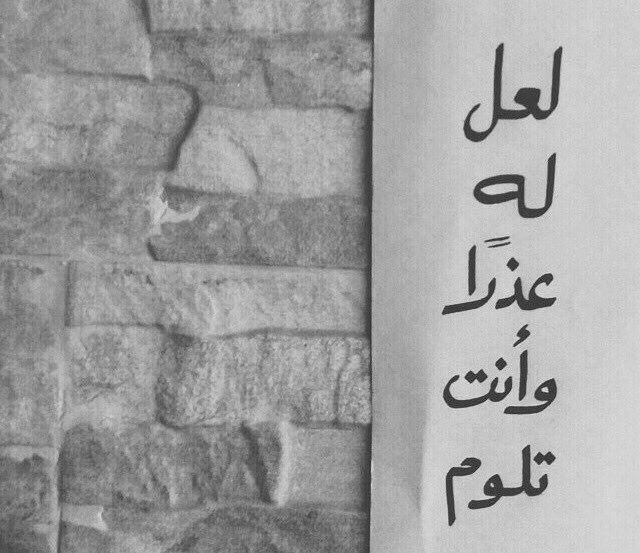 لعل
له
عذرًا
وأنت
تلوم